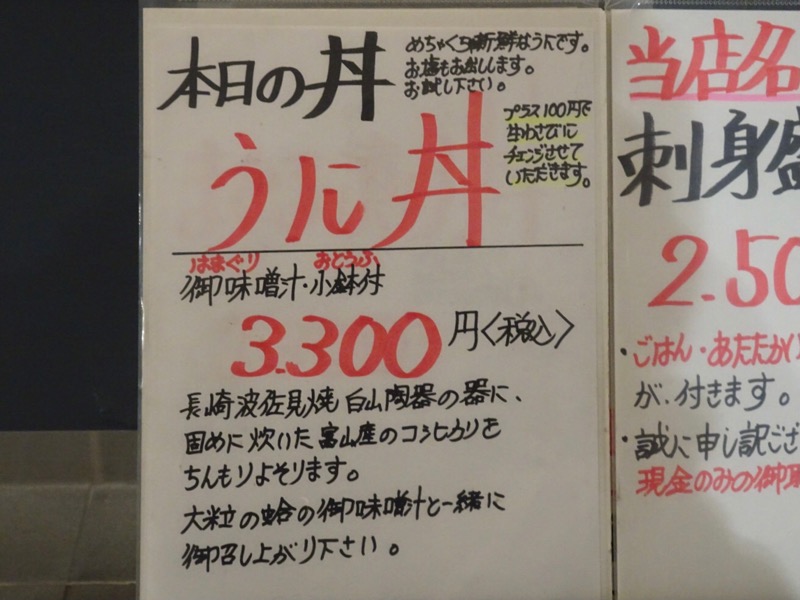 本日の丼
めちゃくち新鮮なうにです。
お塩もお出しします。
お試し下さい。
プラス100円で
生わさびに
チェンジさせて
いただきます。
うに丼
はまぐり おとうふ
御味噌汁・小鉢付
3.300円〈税込〉
長崎波佐見焼 白山陶器の器に、
固めに炊いた富山産のコシヒカリを
ちんもりよそります。
大粒の蛤の御味噌汁と一緒に
御召し上がり下さい。
当店名
刺身盛
2.50
・ごはん・あたたかい
が、付きます。
・誠に申し訳ござ
現金のみの御